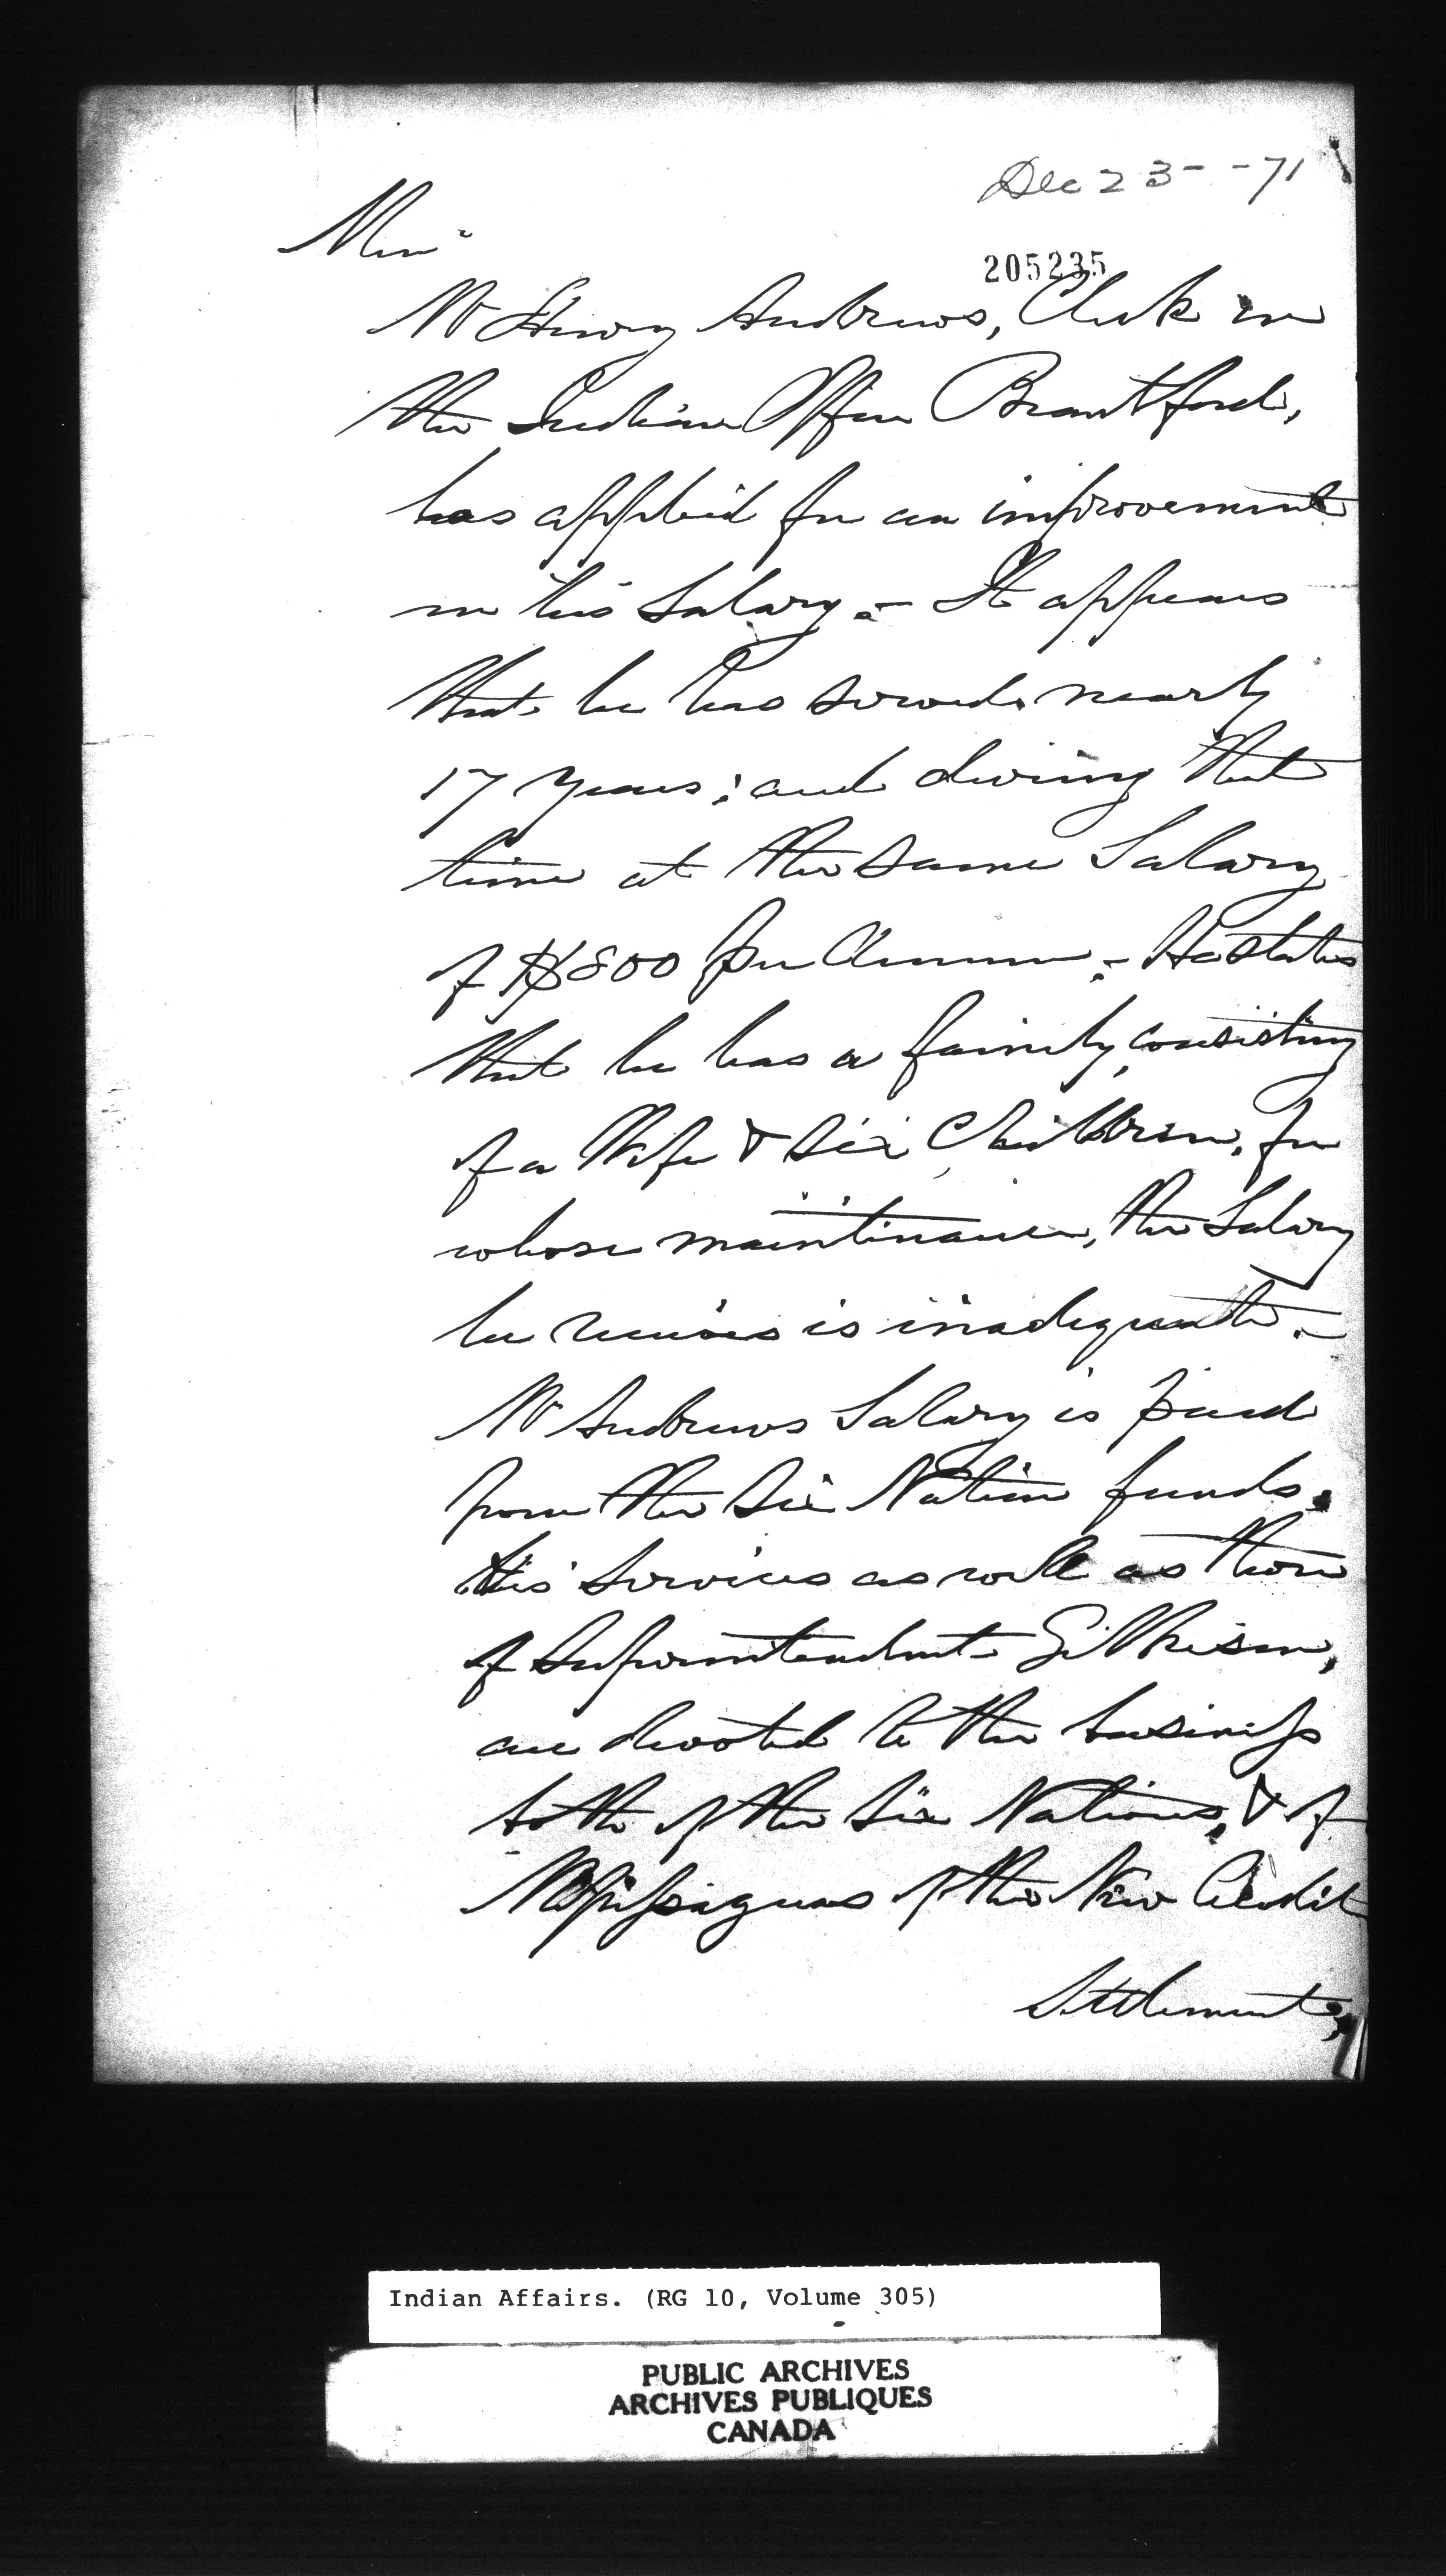 Dec 23 - - 71
Mem
205235
Mr Henry Andrews, Clerk in
the Indian Office Brantford,
has applied for an improvement
in his Salary. - It appears
that he has served nearly
17 years; and during that
time at the same Salary
of $800 per Annum. - He states
that he has a family, consisting
of a Wife & Six Children, for
whose maintinance, the Salary
he receives is inadequate. -
Mr Andrews Salary is paid
from the Six Nation funds.
His services as well as those
of Superintendent Gilkison,
are devoted to the business
both of the Six Nations, & of
Missisaguas of the New Credit
Settlement,
Indian Affairs. (RG 10, Volume 305)
PUBLIC ARCHIVES
ARCHIVES PUBLIQUES
CANADA